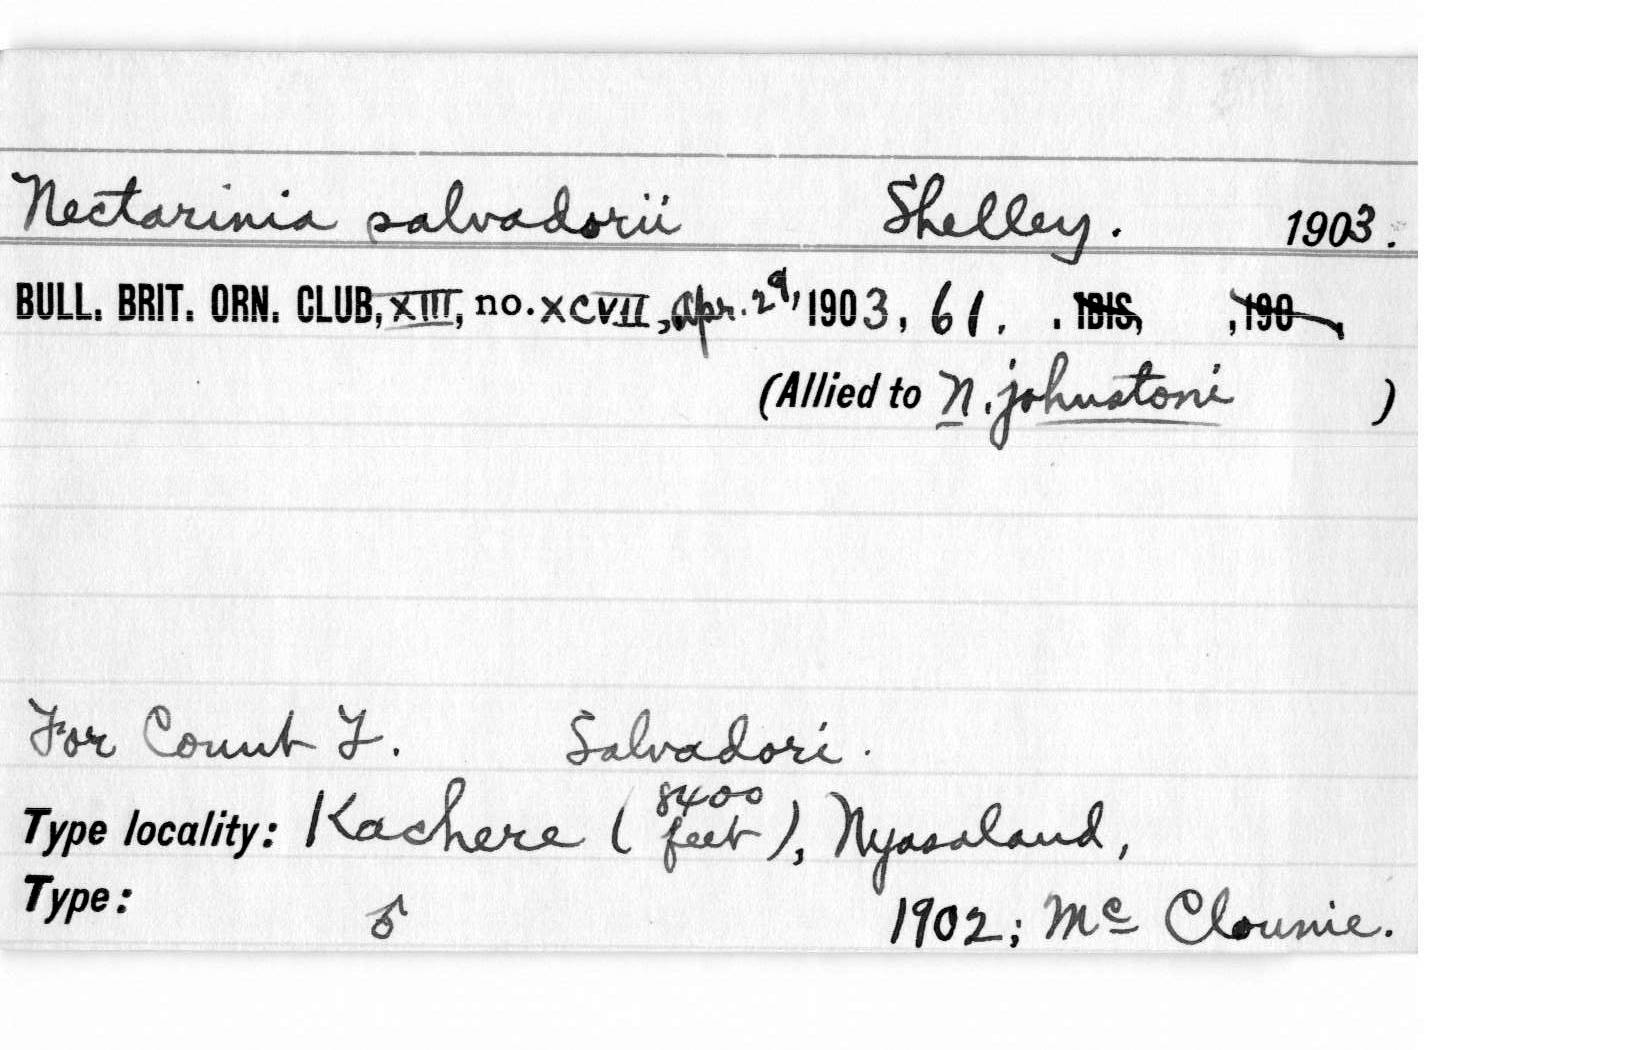 Nectarinia salvadorii Shelley. 1903.
BULL. BRIT. ORN. CLUB, XIII, no. XCVII, Apr. 29, 1903, 61. . IBIS, ,190 ,
(Allied to N. johnstoni )
For Count T. Salvadori.
Type locality: Kachere (8400 feet), Nyasaland,
Type: ♂ 1902; Mc Clounie.